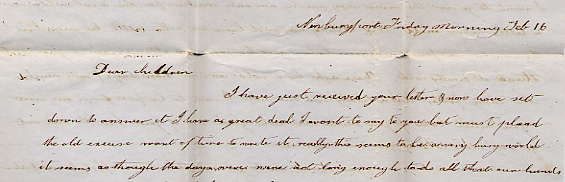 Newburyport Friday Morning Feb 16
Dear Children
I have just received your letter & now have set
down to answer it I have as great deal I want to say to you but must plead
the old excuse want of time to write it, really this seems to be a very busy world
it seems as though the days were not long enough to do all that our hands